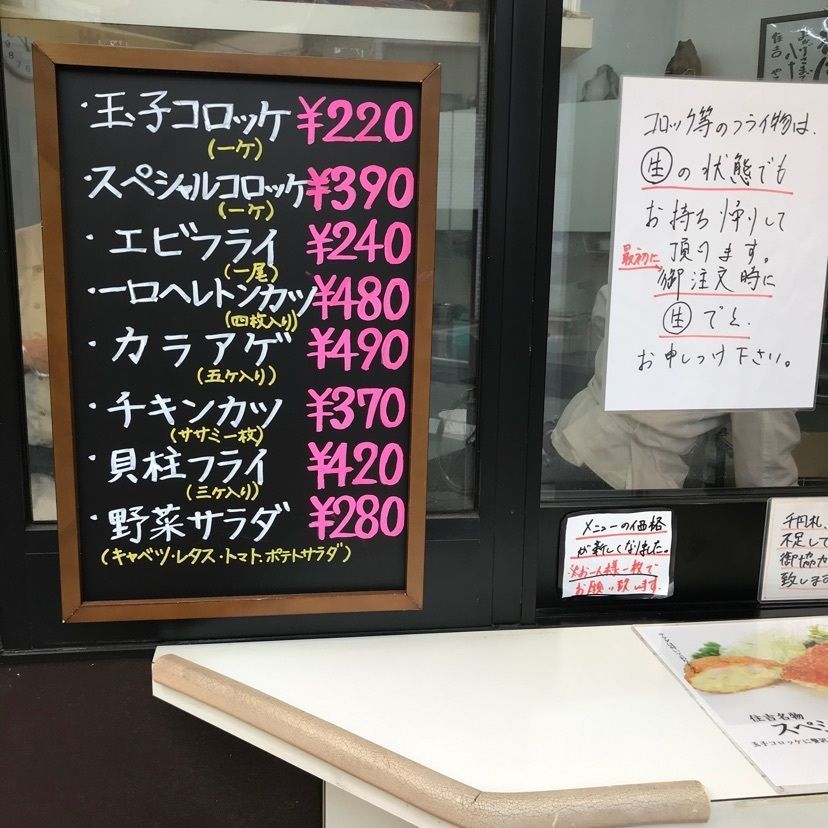 ・玉子コロッケ ¥220
(一ケ)
・スペシャルコロッケ ¥390
(一ケ)
・エビフライ ¥240
(一尾)
・一口ヘレトンカツ ¥480
(四枚入り)
・カラアゲ ¥490
(五ケ入り)
・チキンカツ ¥370
(ササミ一枚)
・貝柱フライ ¥420
(三ケ入り)
・野菜サラダ ¥280
(キャベツ・レタス・トマト・ポテトサラダ)
コロッケ等のフライ物は、
生の状態でも
お持ち帰りして
頂けます。
最初に
御注文時に
生でと、
お申しつけ下さい。
メニューの価格
が新しくなりました。
※お一人様一枚で
お願い致します。
千円札、
不足して
御協力
致します
住吉名物
スペシ
玉子コロッケに
住吉